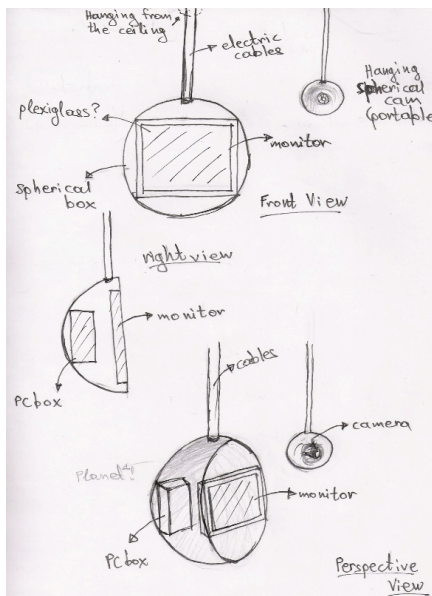 Hanging from
the ceiling
electric
cables
Hanging
spherical
cam
(portable
plexiglass?
monitor
spherical
box
Front View
right view
monitor
PC box
cables
camera
Planet?
monitor
PC box
Perspective
View